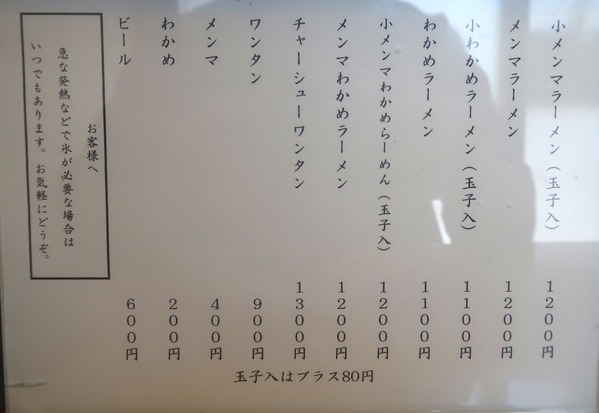 小メンマラーメン(玉子入) 1200円
メンマラーメン 1200円
小わかめラーメン(玉子入) 1100円
わかめラーメン 1100円
小メンマわかめらーめん(玉子入) 1200円
メンマわかめラーメン 1200円
チャーシューワンタン 1300円
ワンタン 900円
メンマ 400円
わかめ 200円
ビール 600円
お客様へ
急な発熱などで氷が必要な場合は
いつでもあります。お気軽にどうぞ。
玉子入はプラス80円